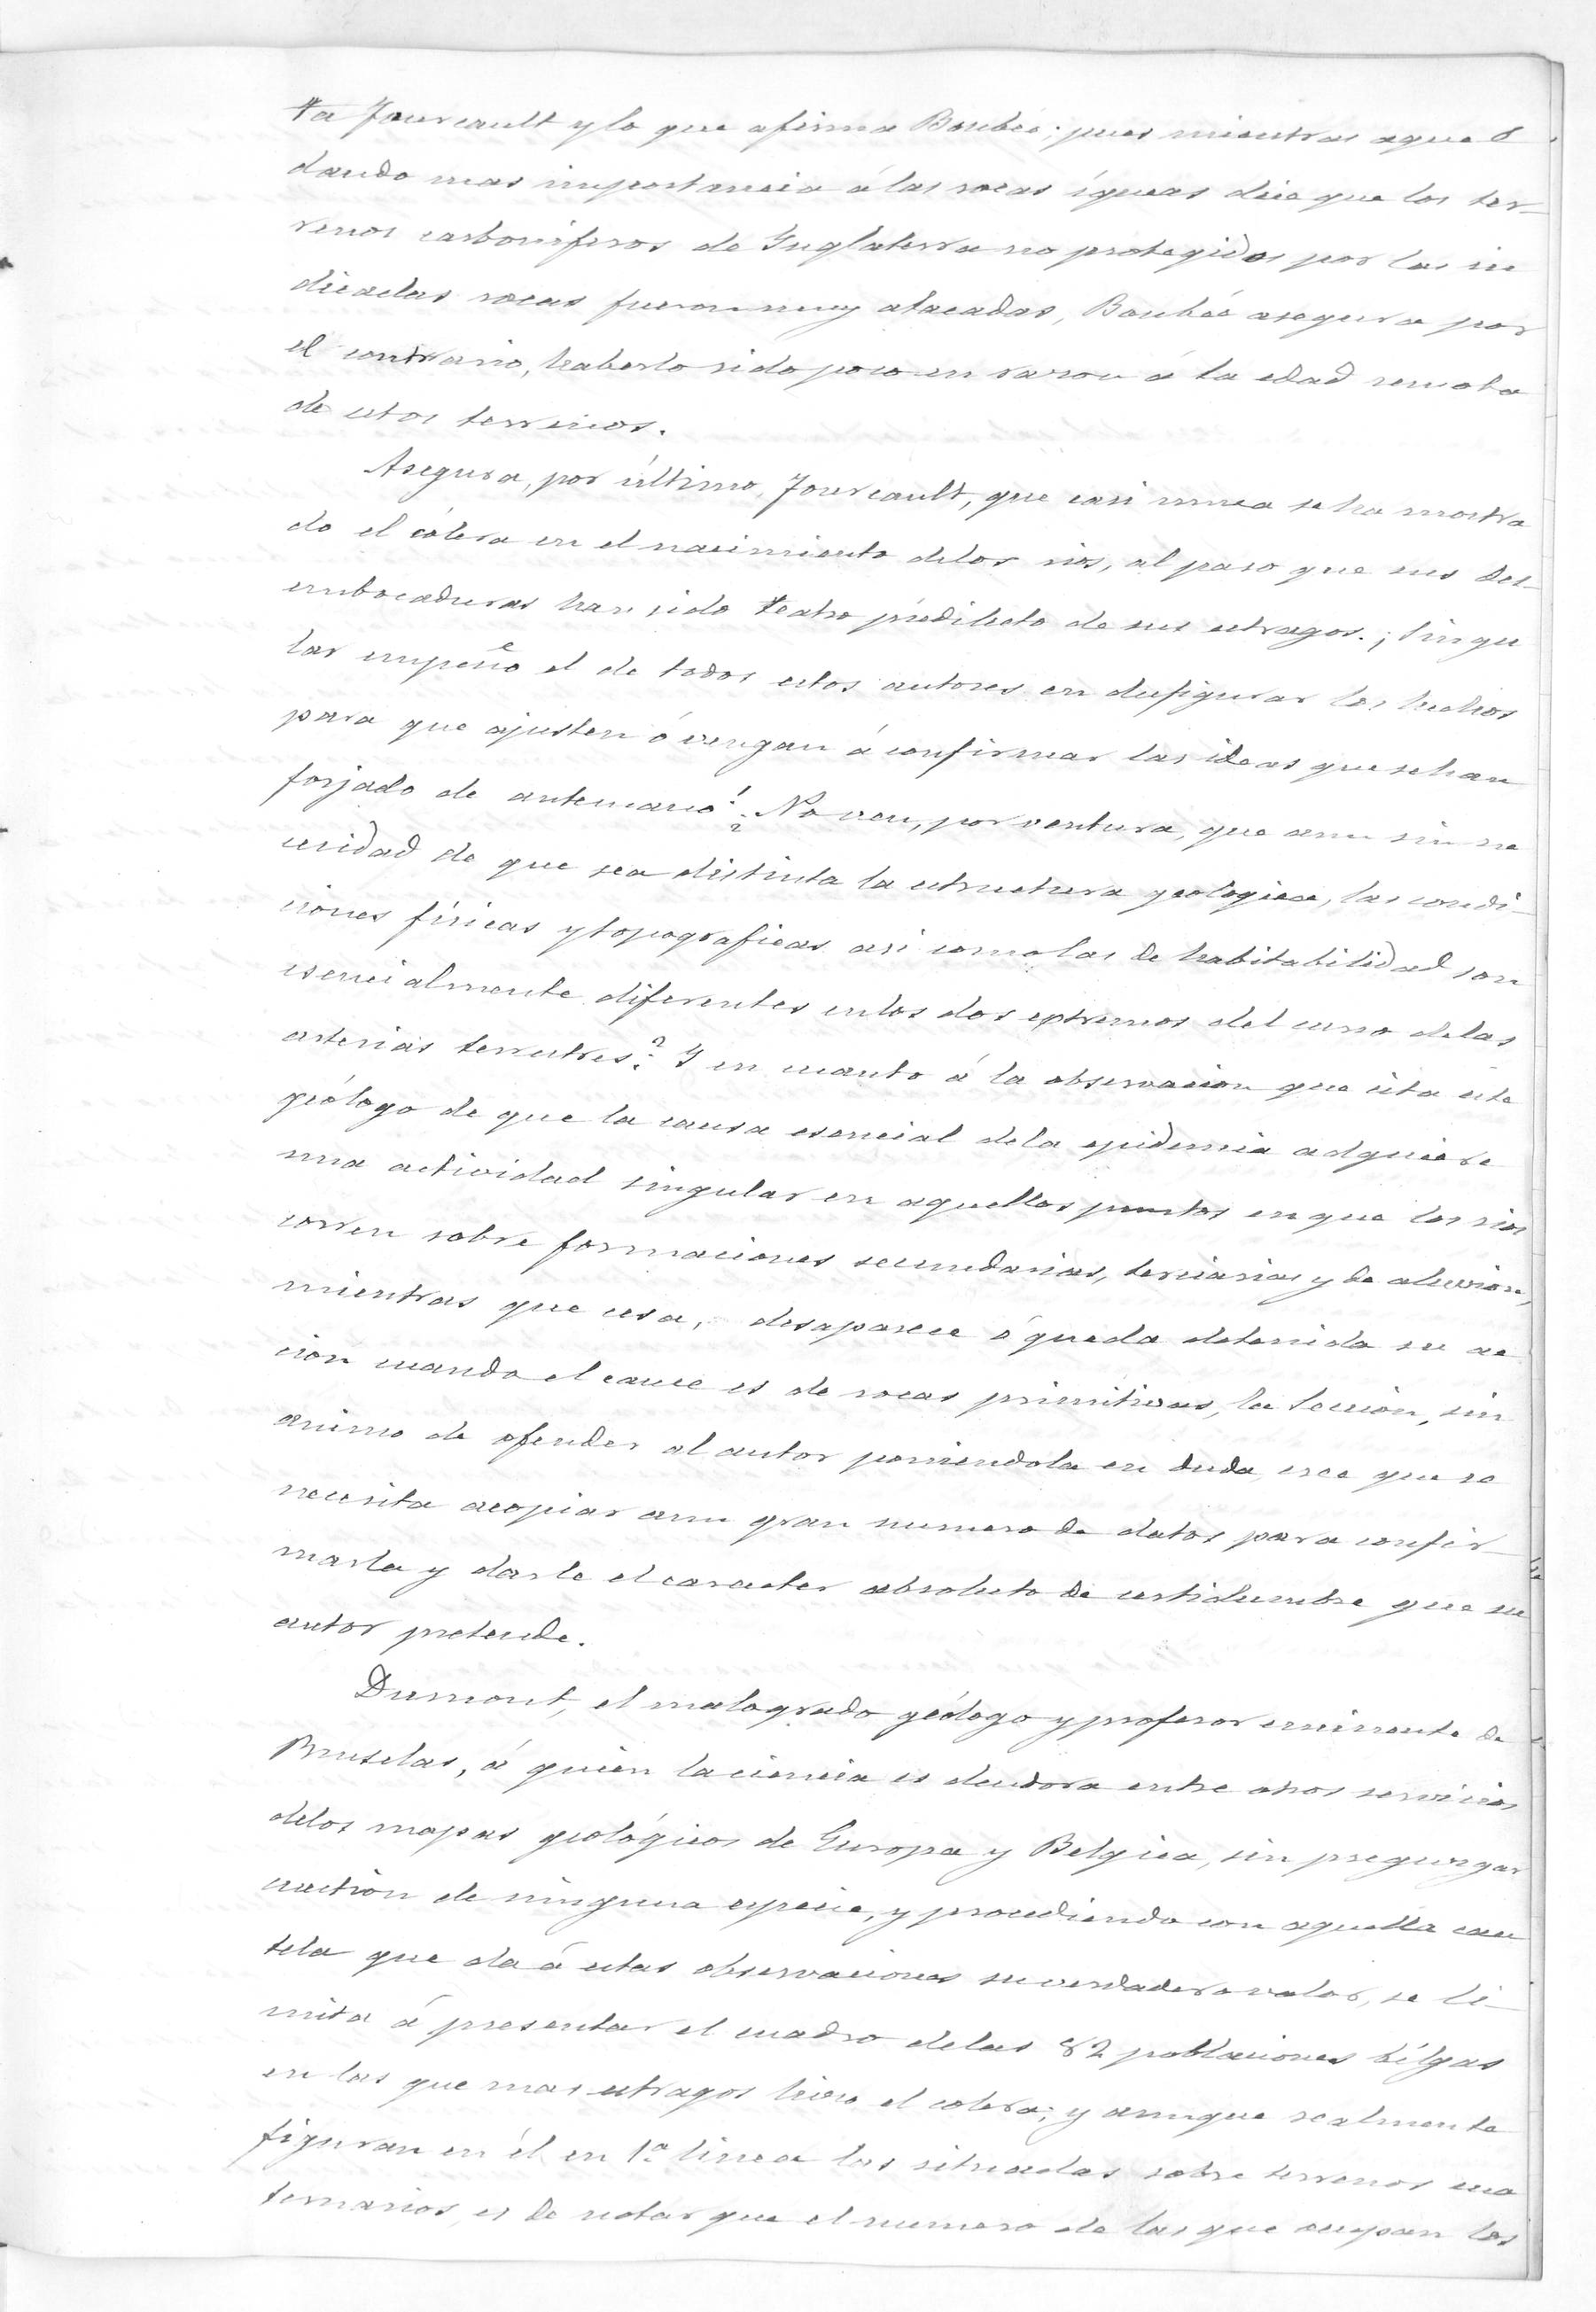 ta Fourcault y lo que afirma Boubée; pues mientras aquel
dando mas importancia á las rocas ígneas dice que los ter-
renos carboníferos de Inglaterra no protegidos por las in
dicadas rocas fueron muy atacadas, Boubée asegura por
el contrario, haberlo sido poco en razon á la edad remota
de estos terrenos.
Asegura, por último, Fourcault, que casi nunca se ha mostra
do el cólera en el nacimiento delos rios, al paso que sus des-
embocaduras han sido teatro predilecto de sus estragos. ¡Singu
lar empeño el de todos estos autores en desfigurar los hechos
para que ajusten ó vengan á confirmar las ideas que se han
forjado de antemano! ¿No ven, por ventura, que aun sin ne
cesidad de que sea distinta la estructura geologica, las condi-
ciones físicas y topograficas asi como las de habitabilidad son
esencialmente diferentes en los dos extremos del curso delas
arterias terrestres? Y en cuanto á la observacion que cita este
geólogo de que la causa esencial dela epidemia adquiere
una actividad singular en aquellos puntos en que los rios
corren sobre formaciones secundarias, terciarias y de aluvion,
mientras que cesa, desaparece ó queda detenida su ac
cion cuando el cauce es de rocas primitivas, la Seccion, sin
animo de ofender al autor poniendola en duda, cree que se
necesita acopiar aun gran numero de datos para confir-
marla y darle el caracter absoluto de certidumbre que su
autor pretende.
Dumont, el malogrado geólogo y profesor eminente de
Bruselas, á quien la ciencia es deudora entre otros servicios
delos mapas geológicos de Europa y Belgica, sin prejuzgar
cuestion de ninguna especie, y procediendo con aquella cau
tela que da á estas observaciones su verdadero valor, se li-
mita á presentar el cuadro delas 82 poblaciones bélgas
en las que mas estragos hizo el colera; y aunque realmente
figuran en él en 1ª linea las situadas sobre terrenos cua
ternarios, es de notar que el numero de las que ocupan los